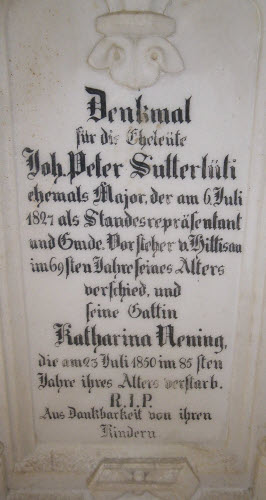 Denkmal
für die Eheleüte
Joh. Peter Sutterlüti
ehemals Major, der am 6. Juli
1827 als Standesrepräsentant
und Gmde. Vorsteher v. Hittisau
im 69sten Jahre seines Alters
verschied, und
seine Gattin
Katharina Nening,
die am 23 Juli 1850 im 85 sten
Jahre ihres Alters verstarb.
R.I.P.
Aus Dankbarkeit von ihren
Kindern